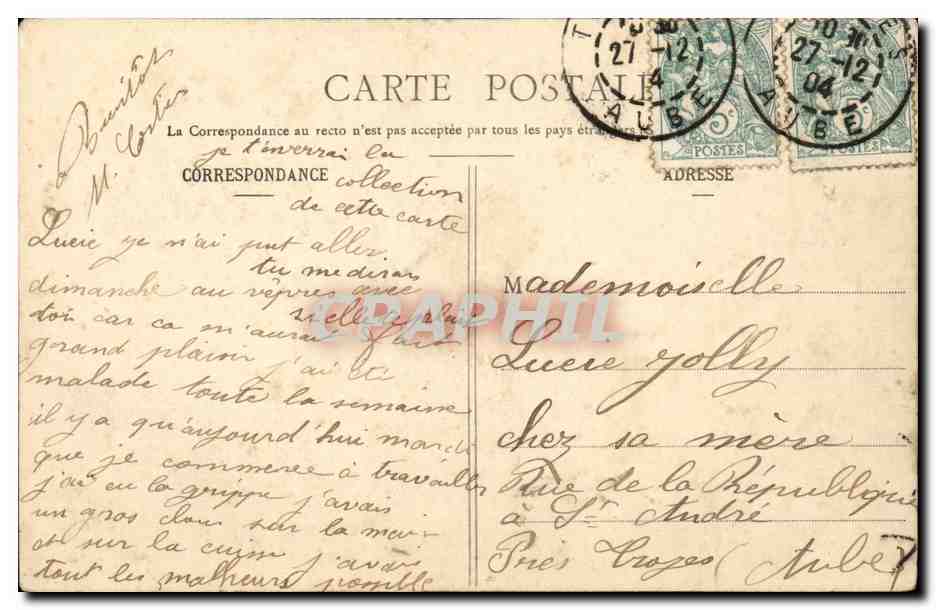 CARTE POSTALE
La Correspondance au recto n'est pas acceptée par tous les pays étrangers
27 -12
04
AUBE
27 -12
04
AUBE
5c
POSTES
POSTES
CORRESPONDANCE
ADRESSE
je t'inverrai la
collection
de cette carte
Lucie je n'ai put aller
tu me diras
dimanche au vêpres avec
si elle te plait
toi car ca m'aurai fait
grand plaisir j'ai été
malade toute la semaine
il y a qu'aujourd'hui mardi
que je commence à travailler
j'ai eu la grippe j'avais
un gros clou sur la main
et sur la cuisse j'avais
tout les malheurs possible
M.
Mademoiselle
Lucie Jolly
chez sa mère
Rue de la République
à St André
Près Troyes (Aube)
CPAPHIL